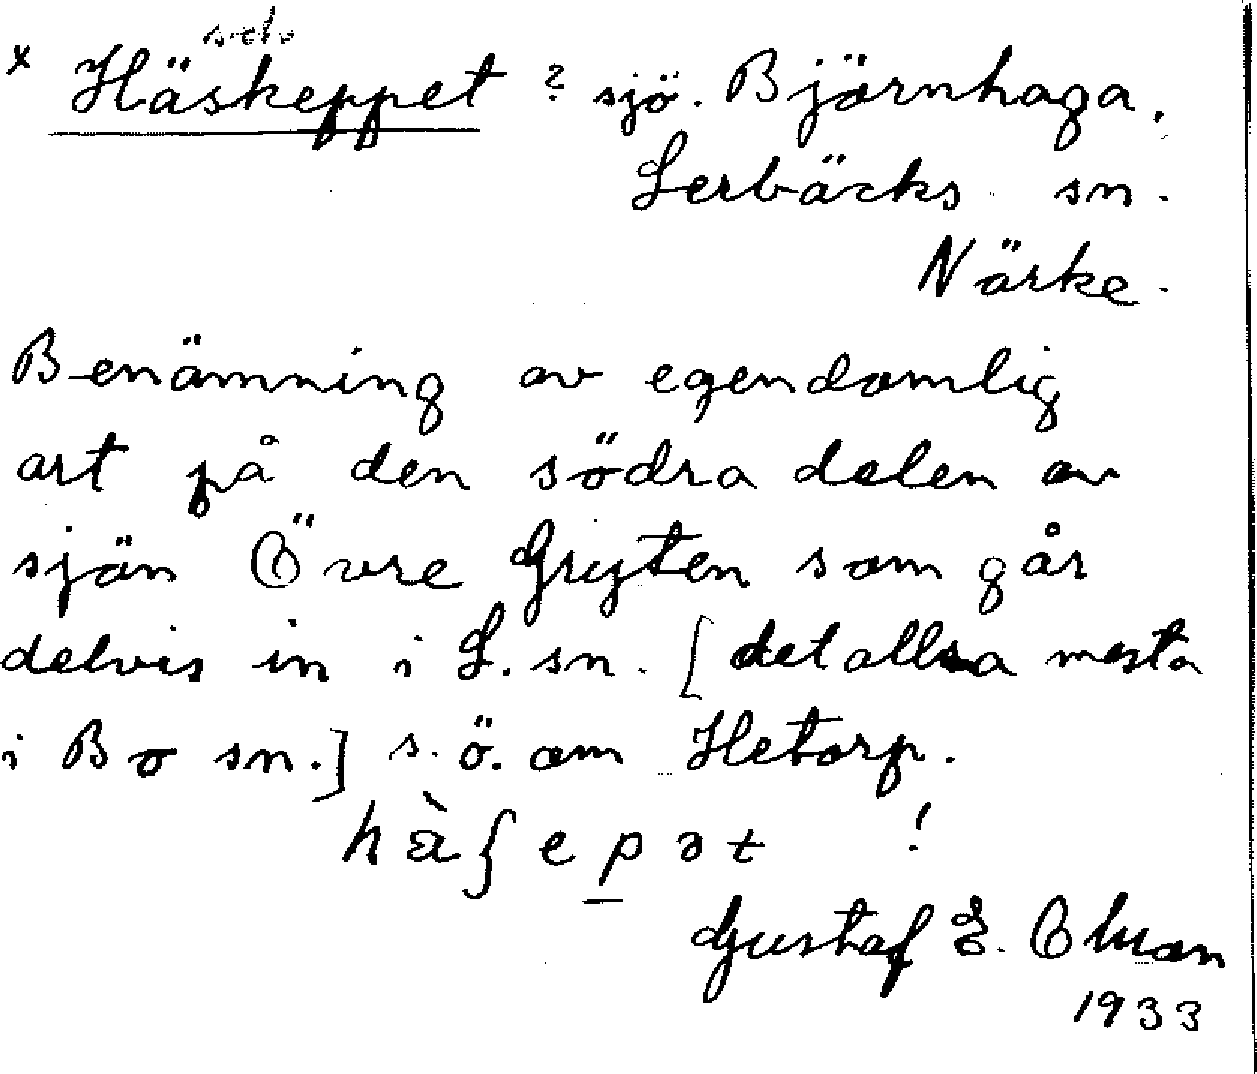 x Häskeppet ? sjö. Björnhaga,
Lerbäcks sn.
Närke.
Benämning av egendomlig
art på den södra delen av
sjön Övre Gryten som går
delvis in i L. sn. [det allra mesta
i Bo sn.] s.ö. om Hetorp.
hὰʃepət !
Gustaf E. Ohman
1933